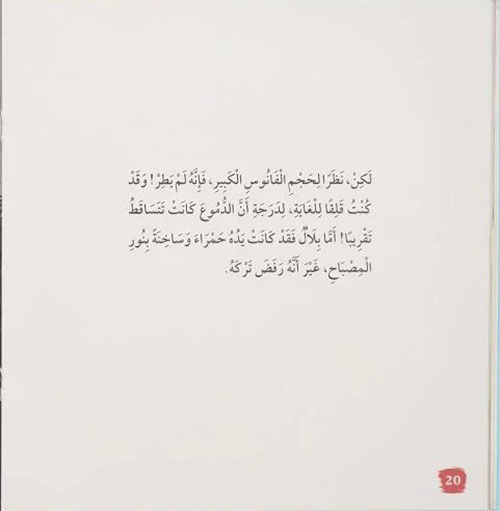 لَكِنْ، نَظَرًا لِحَجْمِ الْفَانُوسِ الْكَبِيرِ، فَإِنَّهُ لَمْ يَطِرْ! وَقَدْ
كُنْتُ قَلِقًا لِلْغَايَةِ، لِدَرَجَةِ أَنَّ الدُّمُوعَ كَانَتْ تَتَسَاقَطُ
تَقْرِيبًا! أَمَّا بِلَالٌ فَقَدْ كَانَتْ يَدُهُ حَمْرَاءَ وَسَاخِنَةً بِنُورِ
الْمِصْبَاحِ، غَيْرَ أَنَّهُ رَفَضَ تَرْكَهُ.
20